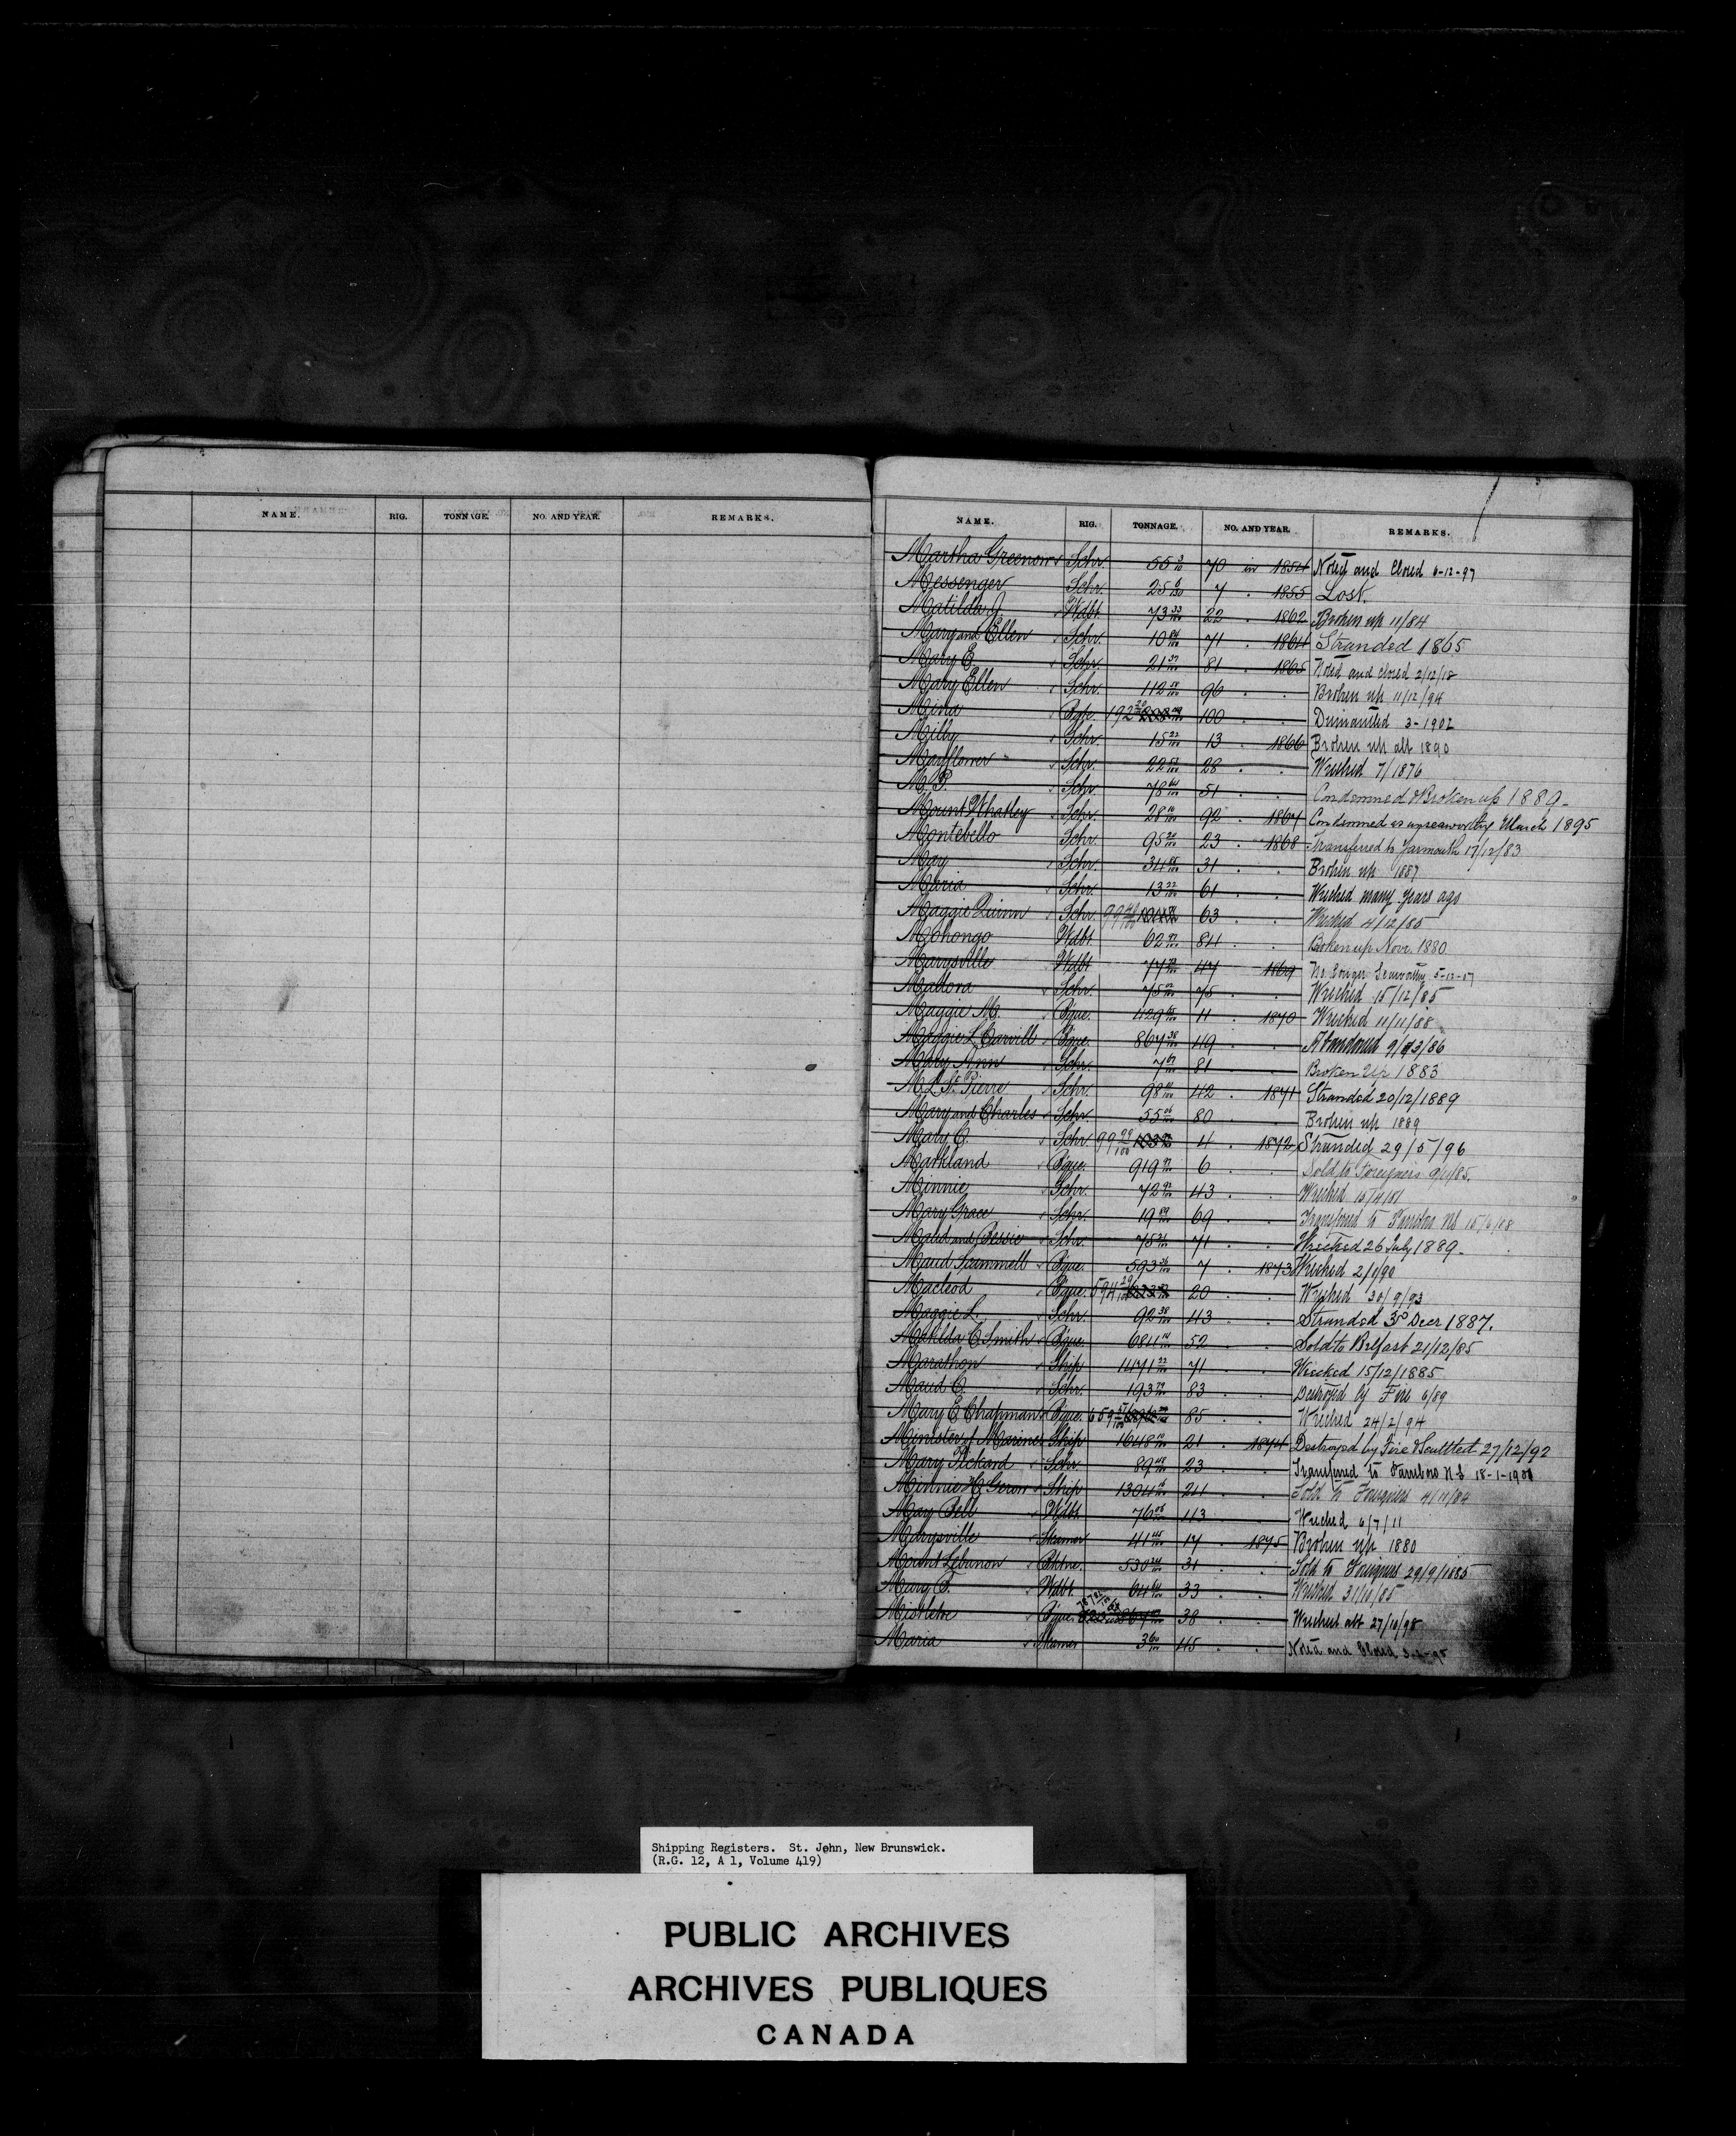 NAME. RIG. TONNAGE. NO. AND YEAR. REMARKS.
NAME. RIG. TONNAGE. NO. AND YEAR. REMARKS.
Martha Greenow Schr. 55 70 in 1854 Noted and Closed 6-12-97
Messenger Schr. 25 7 . 1855 Lost.
Matilda J. Wdbt. 73 33/100 22 . 1862 Broken up 11/84
Mary and Ellen Schr. 10 84/100 71 . 1864 Stranded 1865
Mary E. Schr. 21 37/100 81 . 1865 Noted and closed 2/12/18
Mary Ellen Schr. 112 96 . . Broken up 11/12/94
Mina 192 100 . . Dismantled 3-1902
Milly Schr. 15 22/100 13 . 1866 Broken up abt 1890
Mayflower Schr. 22 28 . . Wrecked 7/1876
M. P. Schr. 78 51 . . Condemned & Broken up 1889-
Mount Whatley Schr. 28 92 . 1867 Condemned as unseaworthy March 1895
Montebello Schr. 95 23 . 1868 Transferred to Yarmouth 17/12/83
May Schr. 34 31 . . Broken up 1887
Maria Schr. 13 22/100 61 . . Wrecked many years ago
Maggie Quinn Schr. 99 63 . . Wrecked 4/12/85
Mohongo Wdbt. 62 84 . . Broken up Novr. 1880
Marysville Wdbt. 77 47 1869 No longer Seaworthy 5-12-07
Madora Schr. 75 75 . . Wrecked 15/12/85
Maggie M. Bque. 429 11 . 1870 Wrecked 11/11/88
Maggie L. Carvill Bque. 867 38/100 49 . . Abandoned
Mary Ann Schr. 7 81 . . Broken Up 1883
M. L. St. Pierre Schr. 98 42 . 1871 Stranded 20/12/1889
Mary and Charles Schr. 55 80 . . Broken up 1889
Mary C. Schr. 99 99/100 4 . 1872 Stranded 29/5/96
Markland Bque. 919 6 . . Sold to Foreigners
Minnie Schr. 72 43 . . Wrecked
Mary Grace Schr. 19 69 . . Transferred to Parrsboro NS
Maud and Bessie Schr. 75 71 . . Wrecked 26 July 1889-
Maud Scammell Bque. 593 7 . 1873 Wrecked 2/1/90
Macleod Bque. 594 29/100 20 . . Wrecked 30/9/93
Maggie L. Schr. 92 38/100 43 . . Stranded 3d Decr 1887.
Matilda C. Smith Bque. 684 52 . . Sold to Belfast 21/12/85
Marathon Ship 1471 22/100 71 . . Wrecked 15/12/1885
Maud C. Schr. 193 83 . . Destroyed by Fire 6/89
Mary E. Chapman Bque. 659 57/100 85 . . Wrecked 24/2/94
Minister of Marine Ship 1648 21 . 1874 Destroyed by Fire & Scuttled 27/12/92
Mary Pickard Schr. 89 23 . . Transferred to Parrsboro N.S. 18-1-1900
Minnie H. Gerow Ship 1304 24 . . Sold to Foreigners 4/11/84
May Bell Wdbt. 76 113 . . Wrecked 6/7/11
Marysville Steamer 41 17 . 1875 Broken up 1880
Mount Lebanon Bktne. 530 31 . . Sold to Foreigners 29/9/1885
Mary F. Wdbt. 64 33 . . Wrecked 31/10/85
Mistletoe Bque. 38 . . Wrecked abt 27/10/98
Maria Steamer 3 60/100 45 . . Noted and Closed
Shipping Registers. St. John, New Brunswick.
(R.G. 12, A 1, Volume 419)
PUBLIC ARCHIVES
ARCHIVES PUBLIQUES
CANADA